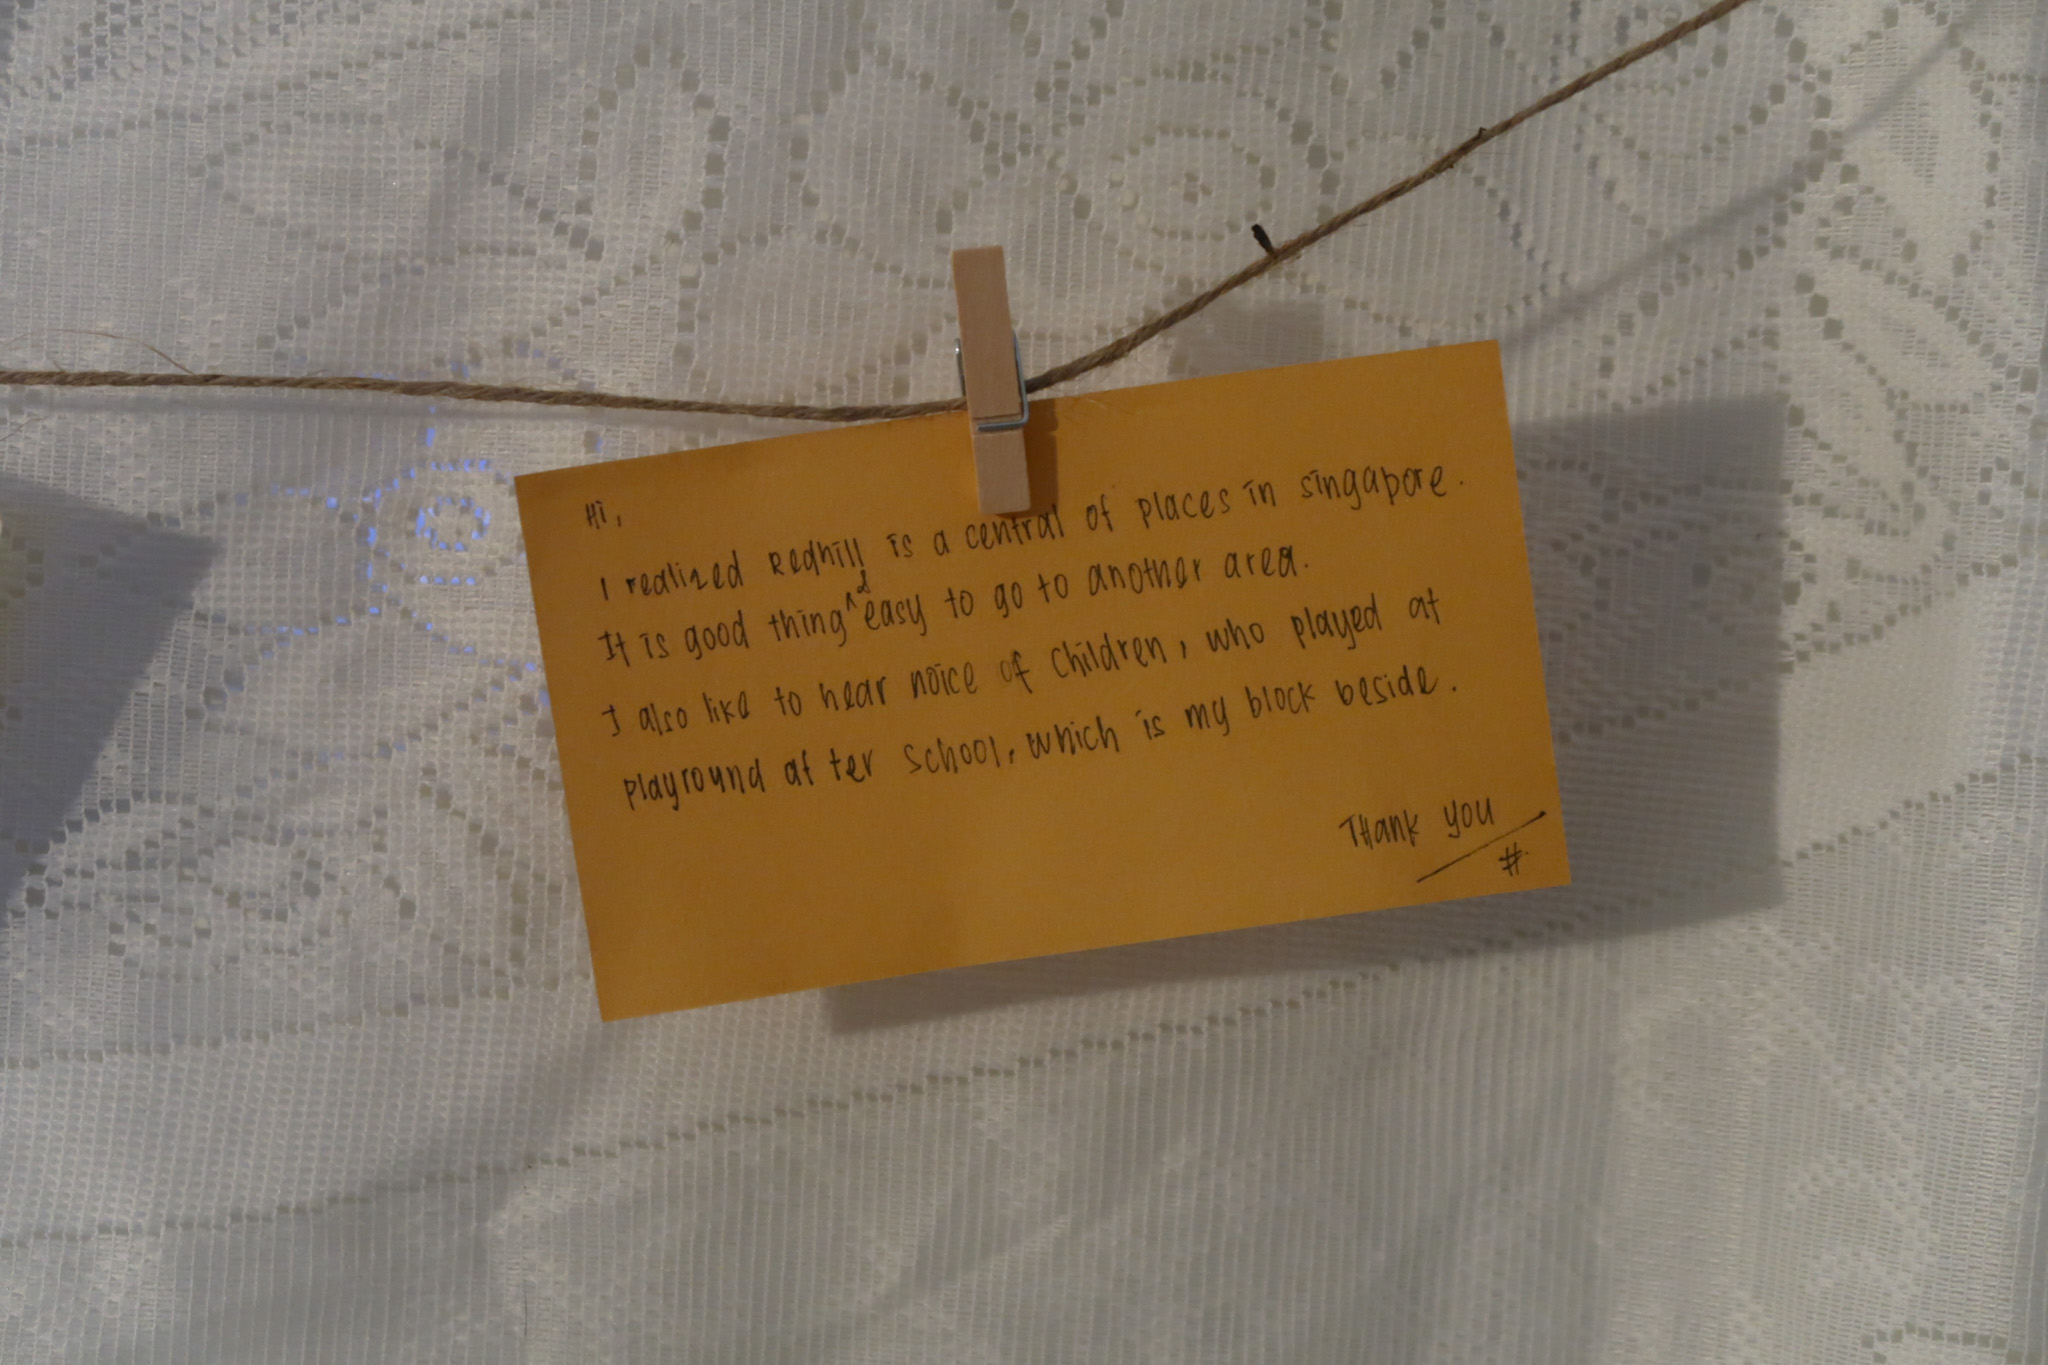 Hi,
I realized Redhill is a central of places in singapore.
It is good thing & easy to go to another area.
I also like to hear noice of children, who played at
playround after school, which is my block beside.
Thank you
#